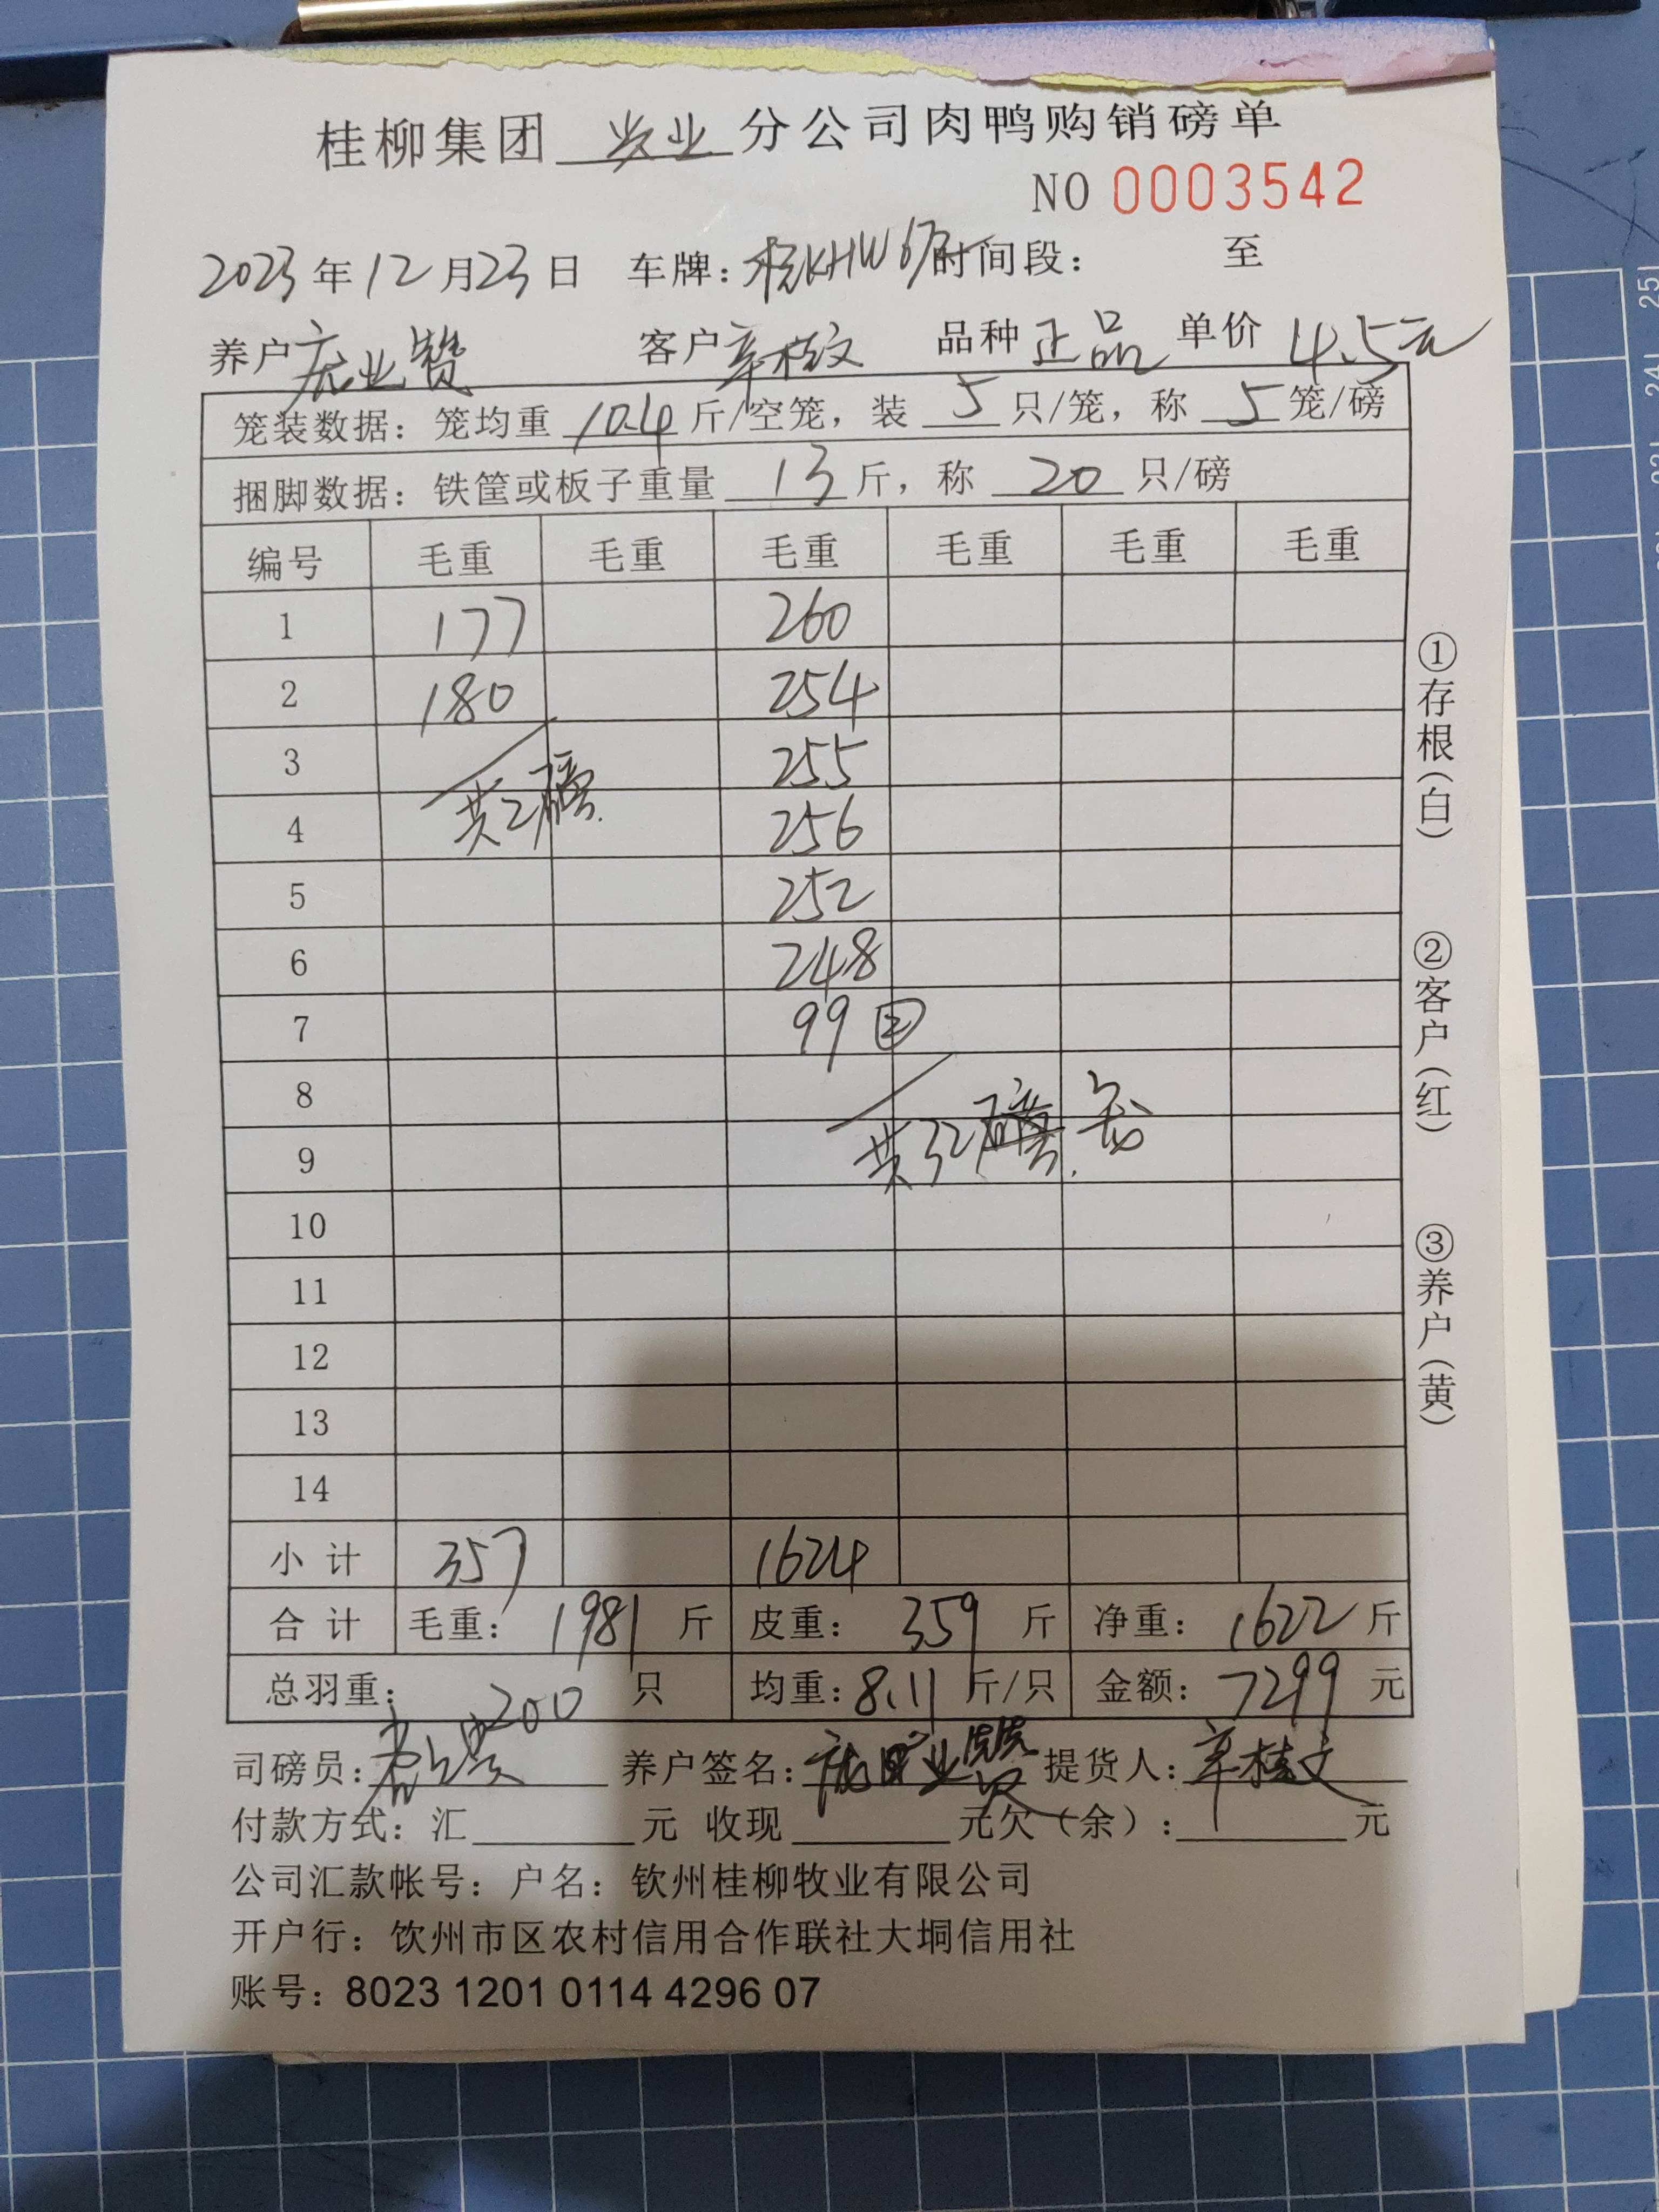 桂柳集团 兴业 分公司肉鸭购销磅单
NO 0003542
2023年12月23日 车牌:桂KHW 时间段: 至
养户 业赞 客户 辛桂文 品种 正品 单价 4.5元
笼装数据: 笼均重 10.4 斤/空笼, 装 5 只/笼, 称 5 笼/磅
捆脚数据: 铁筐或板子重量 13 斤, 称 20 只/磅
编号 毛重 毛重 毛重 毛重 毛重 毛重
1 177 260
2 180 254
3 255
4 共2磅. 256
5 252
6 248
7 99 ②
8
9 共32磅.
10
11
12
13
14
小 计 357 1624
合 计 毛重: 1981 斤 皮重: 359 斤 净重: 1622 斤
总羽重: 200 只 均重: 8.11 斤/只 金额: 7299 元
司磅员: 养户签名: 业赞 提货人: 辛桂文
付款方式: 汇 元 收现 元欠(余): 元
公司汇款帐号: 户名: 钦州桂柳牧业有限公司
开户行: 饮州市区农村信用合作联社大垌信用社
账号: 8023 1201 0114 4296 07
①存根(白)
②客户(红)
③养户(黄)